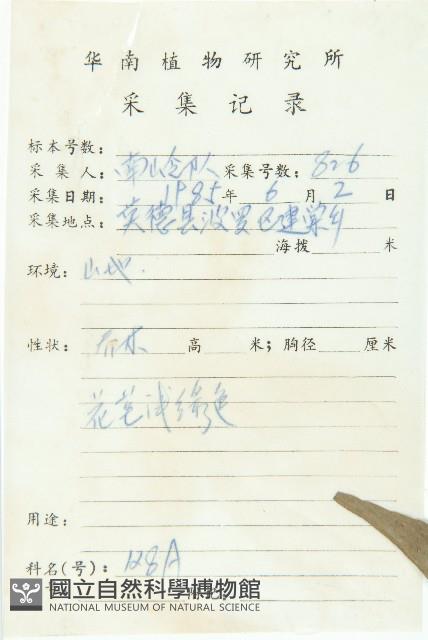 华南植物研究所
采集记录
标本号数:
采集人: 南岭队 采集号数: 326
采集日期: 1985年 6月 2日
采集地点: 英德县波罗区建荣乡
海拔 米
环境: 山地.
性状: 乔木 高 米; 胸径 厘米
花苞浅绿色
用途:
科名(号): 128A
國立自然科學博物館
NATIONAL MUSEUM OF NATURAL SCIENCE